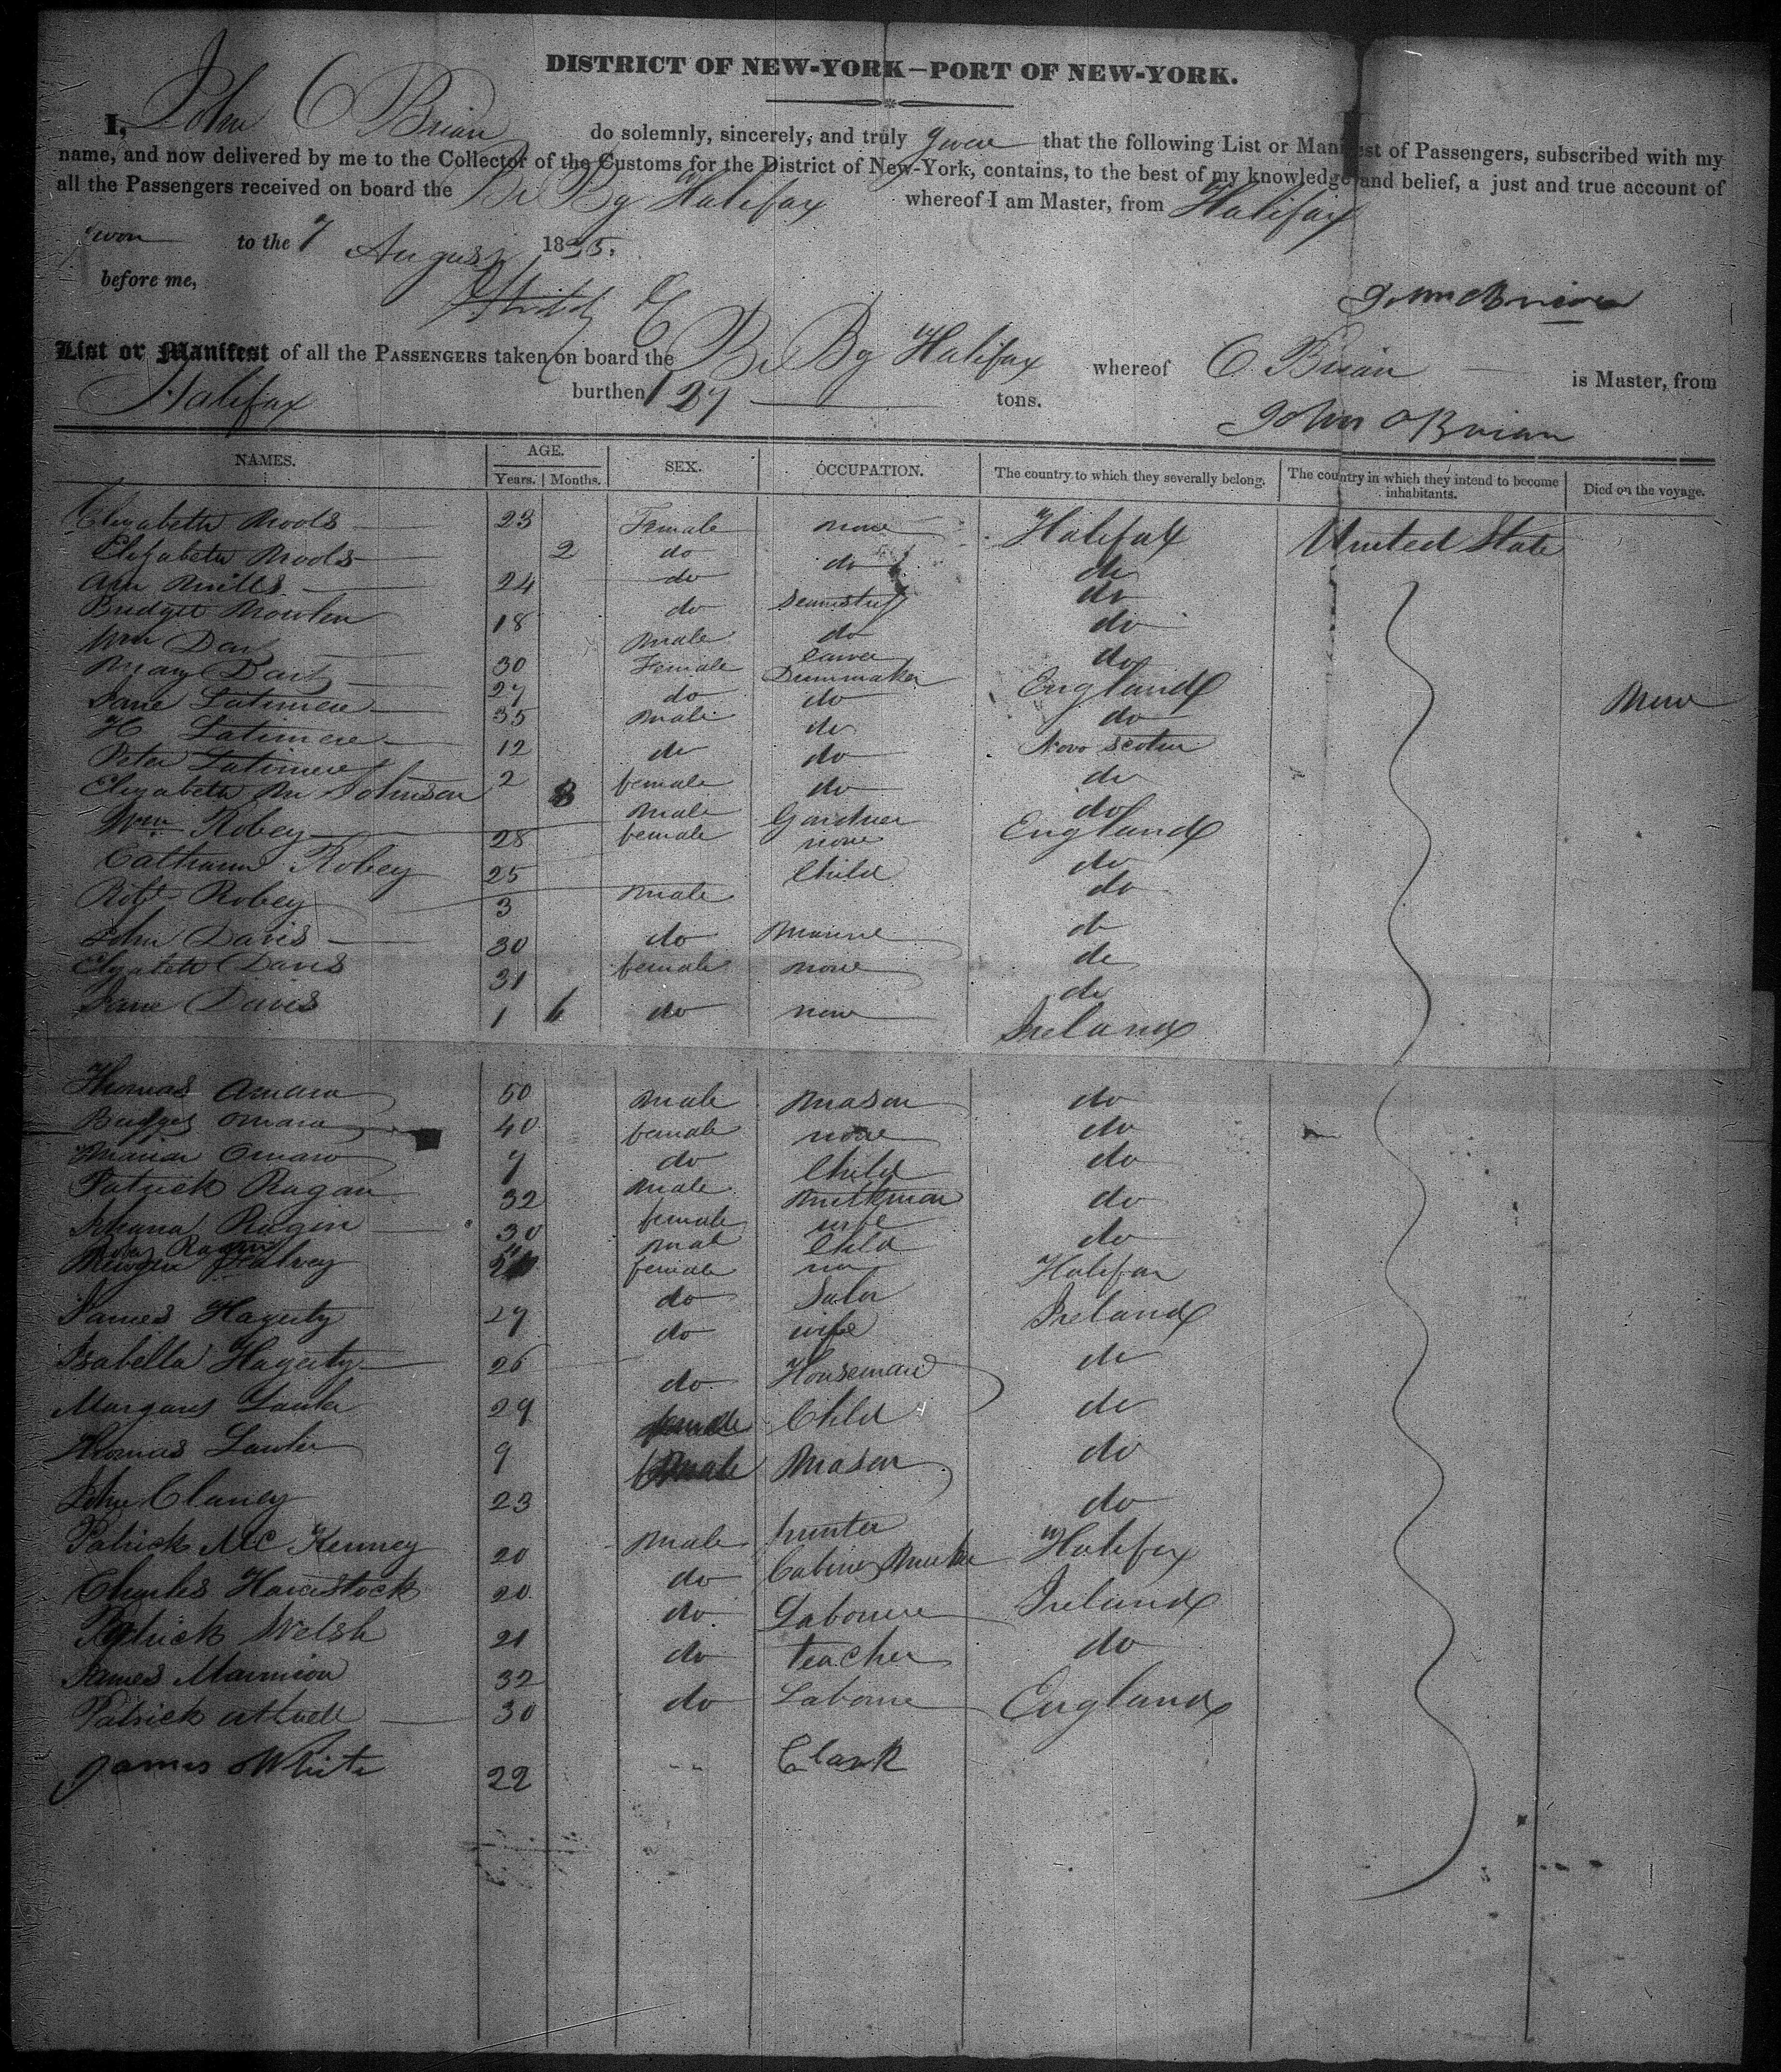 DISTRICT OF NEW-YORK—PORT OF NEW-YORK.
I, John O Brian do solemnly, sincerely, and truly swear that the following List or Manifest of Passengers, subscribed with my
name, and now delivered by me to the Collector of the Customs for the District of New-York, contains, to the best of my knowledge and belief, a just and true account of
all the Passengers received on board the Br Bg Halifax whereof I am Master, from Halifax
Sworn to the 7 August 1835.
before me,
John OBrian
List or Manifest of all the PASSENGERS taken on board the Br Bg Halifax whereof O Brian is Master, from
Halifax burthen 127 tons.
John OBrian
NAMES. AGE. SEX. OCCUPATION. The country to which they severally belong. The country in which they intend to become inhabitants. Died on the voyage.
Years. Months.
Elizabeth 23 Female none Halifax United State
Elizabeth 2 do do do
Ann Mills 24 do Seamstress do
Bridget Nowlen 18 do do do
Wm 30 Male do
Mary 27 Female Dressmaker England
Jane Latimere 35 do do do
H Latimere 12 Male do Nova Scotia
Peter Latimere 2 do do do
Elizabeth M Johnson 8 female do do
Wm Robey 28 Male Gardner England
Catharine Robey 25 female none do
Robt Robey 3 male Child do
John Davis 30 do do
Elizabeth Davis 31 female none do
Jane Davis 1 6 do none Ireland
Thomas Omara 50 male Mason do
Bridget Omara 40 female none do
Maria Omara 7 do Child do
Patrick Ragan 32 male Milkman do
Ragin 30 female wife do
Ragin male Child
female Halifax
James Hagerty 27 do Ireland
Isabella Hagerty 26 do wife do
Margaret 29 do Housemaid do
Thomas 9 Child do
John Clancy 23 male Mason do
Patrick Mc Kenney 20 male hunter
Charles Haverstock 20 do Cabinet Maker Halifax
Patrick Welsh 21 do Labourer Ireland
James Marmion 32 do teacher do
Patrick 30 do Laborer England
James White 22 Clark